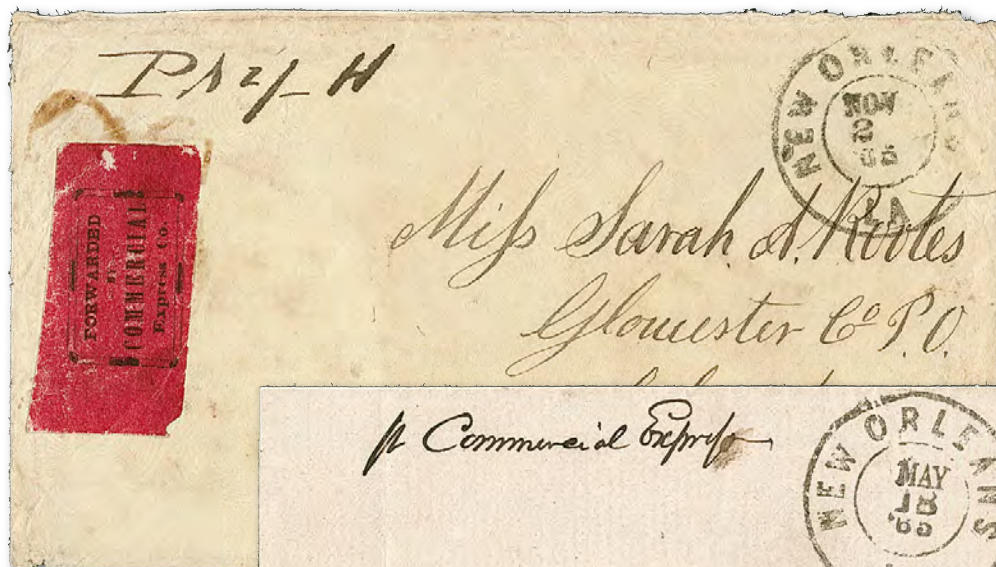 NEW ORLEANS LA
NOV
2
65
FORWARDED
BY
COMMERCIAL
Express Co.
Miſs Sarah A. Rootes
Gloucester Co P.O.
pr Commercial Expreſs
NEW ORLEANS
MAY
18
'65